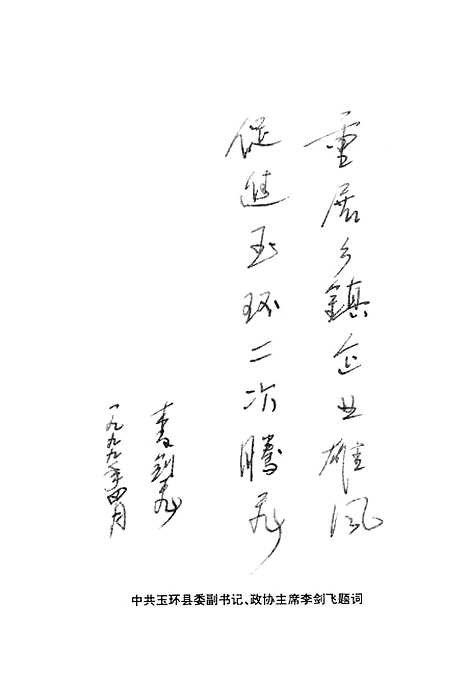 重展乡鎮企业雄风
促進玉环二次腾飞
李剑飞
一九九九年四月
中共玉环县委副书记、政协主席李剑飞题词